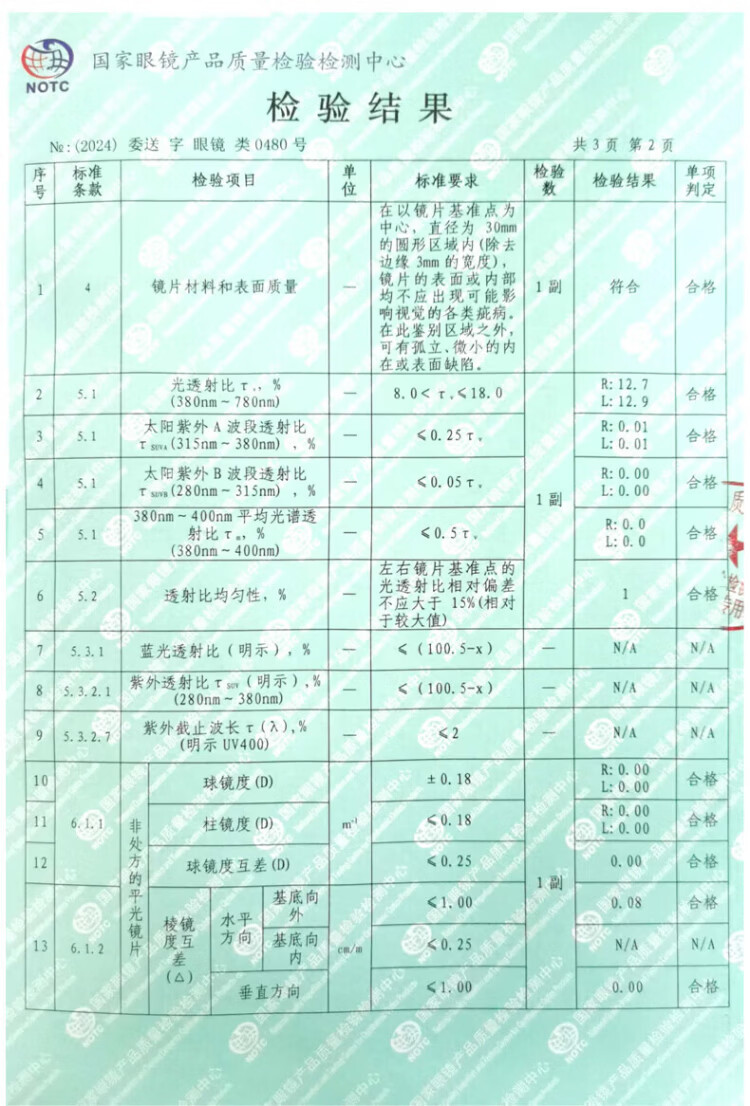 NOTC
国家眼镜产品质量检验检测中心
检验结果
№:(2024) 委送 字 眼镜 类0480号
共3页 第2页
序号 标准条款 检验项目 单位 标准要求 检验数 检验结果 单项判定
1 4 镜片材料和表面质量 —
在以镜片基准点为
中心，直径为 30mm
的圆形区域内(除去
边缘 3mm 的宽度)，
镜片的表面或内部
均不应出现可能影
响视觉的各类疵病。
在此鉴别区域之外，
可有孤立、微小的内
在或表面缺陷。
1副 符合 合格
2 5.1 光透射比τv，%
(380nm～780nm)
— 8.0＜τv≤18.0
R:12.7
L:12.9
合格
3 5.1 太阳紫外A波段透射比
τSUVA(315nm～380nm)，%
— ≤0.25τv
R:0.01
L:0.01
合格
4 5.1 太阳紫外B波段透射比
τSUVB(280nm～315nm)，%
— ≤0.05τv
R:0.00
L:0.00
合格
1副
5 5.1 380nm～400nm平均光谱透
射比τm，%
(380nm～400nm)
— ≤0.5τv
R:0.0
L:0.0
合格
6 5.2 透射比均匀性，% —
左右镜片基准点的
光透射比相对偏差
不应大于 15%(相对
于较大值)
1 合格
7 5.3.1 蓝光透射比（明示），% — ≤（100.5-x） — N/A N/A
8 5.3.2.1 紫外透射比τSUV（明示），%
(280nm～380nm)
— ≤（100.5-x） — N/A N/A
9 5.3.2.7 紫外截止波长τ(λ)，%
(明示UV400)
— ≤2 — N/A N/A
非处方的平光镜片
10 球镜度(D) ±0.18
R:0.00
L:0.00
合格
11 6.1.1 柱镜度(D) m⁻¹ ≤0.18
R:0.00
L:0.00
合格
12 球镜度互差(D) ≤0.25 0.00 合格
1副
13 6.1.2 棱镜度互差(△) 水平方向 基底向外 cm/m ≤1.00 0.08 合格
基底向内 ≤0.25 N/A N/A
垂直方向 ≤1.00 0.00 合格